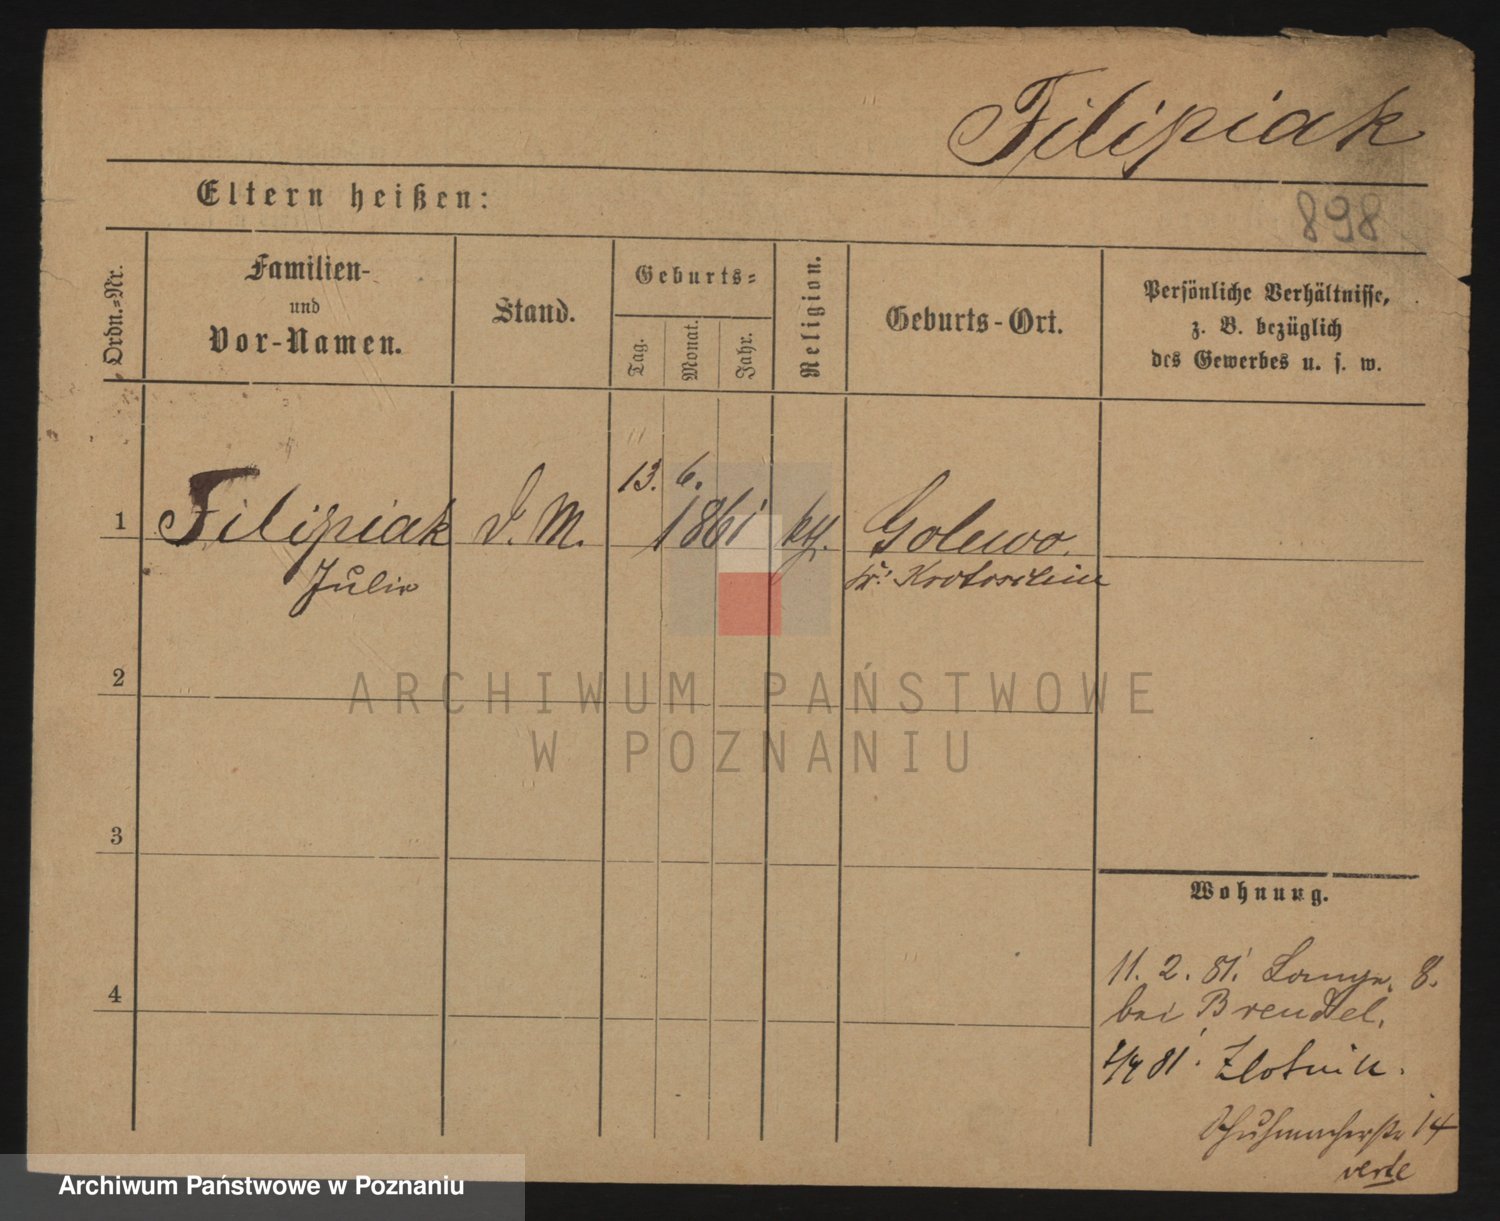 Filipiak
Eltern heißen:
898
Ordn.=Nr.
Familien-
und
Vor-Namen.
Stand.
Geburts=
Tag.
Monat.
Jahr.
Religion.
Geburts-Ort.
Persönliche Verhältnisse,
z. B. bezüglich
des Gewerbes u. s. w.
13. 6.
1 Filipiak D. M. 1861 kth. Golewo.
Julie Kr. Krotoschin
2
ARCHIWUM PAŃSTWOWE
W POZNANIU
3
Wohnung.
11. 2. 81. Lange. 8.
4
bei Brendel.
81. Zlotnik.
Schuhmacherstr 14
verte
Archiwum Państwowe w Poznaniu